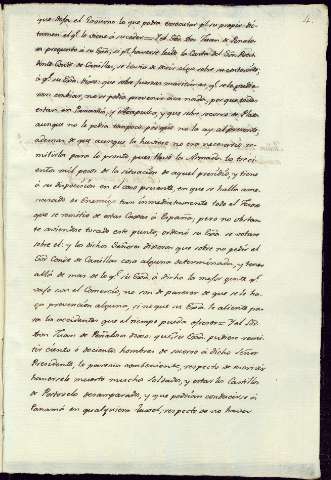 4.
que desea el Govierno lo que podra executar p.r su propio dic-
tamen el q.e le viene a suceder = Y el S.or D.n Juan de Peñalosa
preguntó a su Ex.a si p.r haverse leido la Carta del S.or Presi-
dente Conde de Canillas, se havia de decir algo sobre su contenido,
á q.e su Ex.a dixo: que sobre fuerzas maritimas q.e se le pudie-
ran embiar, no se podia prevenir cosa nada, por que todas
estan en Panamá, y Acapulco, y que sobre socorro de Plata
aunque no le pedia tampoco porque no la ay al presente,
ademas de que aunque la huviese no era necesario re-
mitirla para lo pronto pues llevó la Armada los trecien-
tos mil pesos de la situacion de aquel presidio, y tiene
á su disposicion en el caso presente, en que se halla ame-
nazado de Enemigo tan inmediatamente todo el Tesoro
que se remitio de estas Costas á España, pero no obstan-
te haviendose tocado este punto, ordenó su Ex.a se votase
sobre el: y los dichos Señores dixeron que sobre no pedir el
S.or Conde de Canillas cosa alguna determinada, y tener
allá de mas de lo q.e su Ex.a á dicho la mejor gente q.e
vajo con el Comercio, no son de parecer de que se le ha-
ga prevencion alguna, si no que su Ex.a le aliente pa-
ra los accidentes que el tiempo pueda ofrecer = Y el S.or
Don Juan de Peñalosa dixo: que si su Ex.a pudiere remi-
tir ciento ó docientos hombres de socorro á dicho Señor
Presidente, le parecia conveniente, respecto de
haversele muerto mucho Soldado, y estar los Castillos
de Portovelo desamparado, y que podrian conducirse á
Panamá en qualquiera vaxel, respecto de no haver